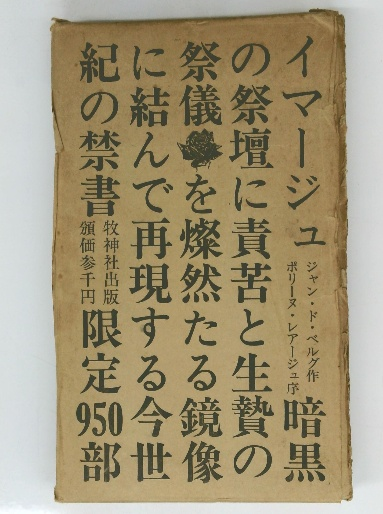 イマージュ ジャン・ド・ベルグ作 ポリーヌ・レアージュ序 暗黒
の祭壇に責苦と生贄の
祭儀を燦然たる鏡像
に結んで再現する今世
紀の禁書 牧神社出版 頒価参千円 限定950部